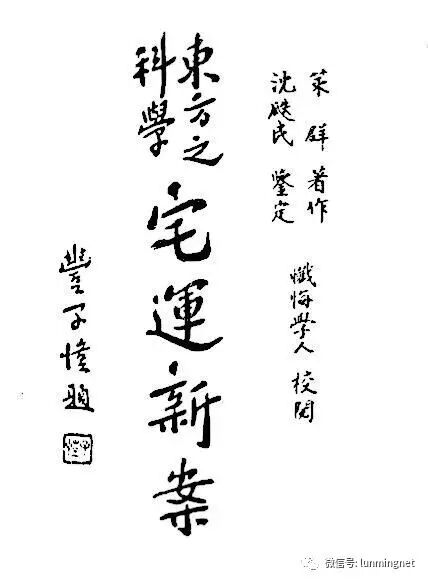 策群 著作
沈瓞民 鑒定
懺悔學人 校閱
東方之
科學
宅運新案
豐子愷題
微信号: lunmingnet